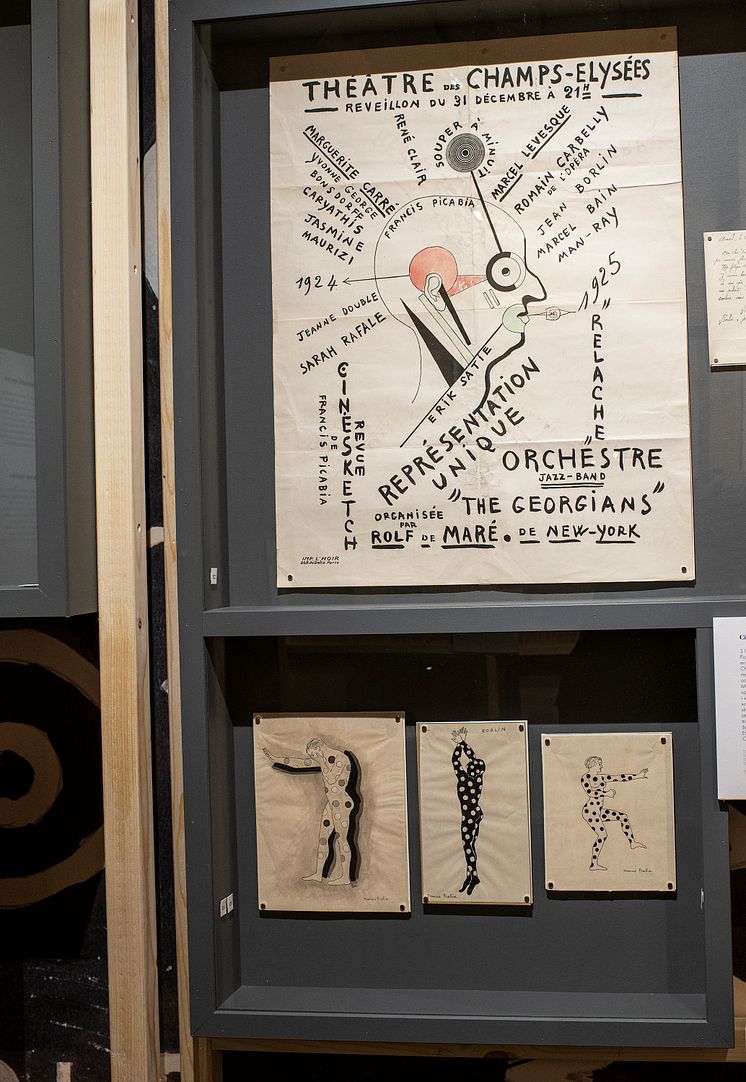 THÉÂTRE DES CHAMPS-ELYSÉES
REVEILLON DU 31 DÉCEMBRE À 21H
MARGUERITE CARRÉ
YVONNE GEORGE
BONSDORFF
CARYATHIS
JASMINE
MAURIZI
RENÉ CLAIR
SOUPER À MINUIT
MARCEL LEVESQUE
ROMAIN CARBELLY
DE L'OPÉRA
JEAN BORLIN
MARCEL BAIN
MAN-RAY
FRANCIS PICABIA
1924
1925
JEANNE DOUBLE
SARAH RAFALE
ERIK SATIE
"RELACHE"
CINÉSKETCH
REVUE
DE
FRANCIS PICABIA
REPRÉSENTATION
UNIQUE
ORCHESTRE
JAZZ-BAND
"THE GEORGIANS"
DE NEW-YORK
ORGANISÉE
PAR
ROLF DE MARÉ.
IMP. L'HOIR
BORLIN
Francis Picabia
Francis Picabia
Francis Picabia